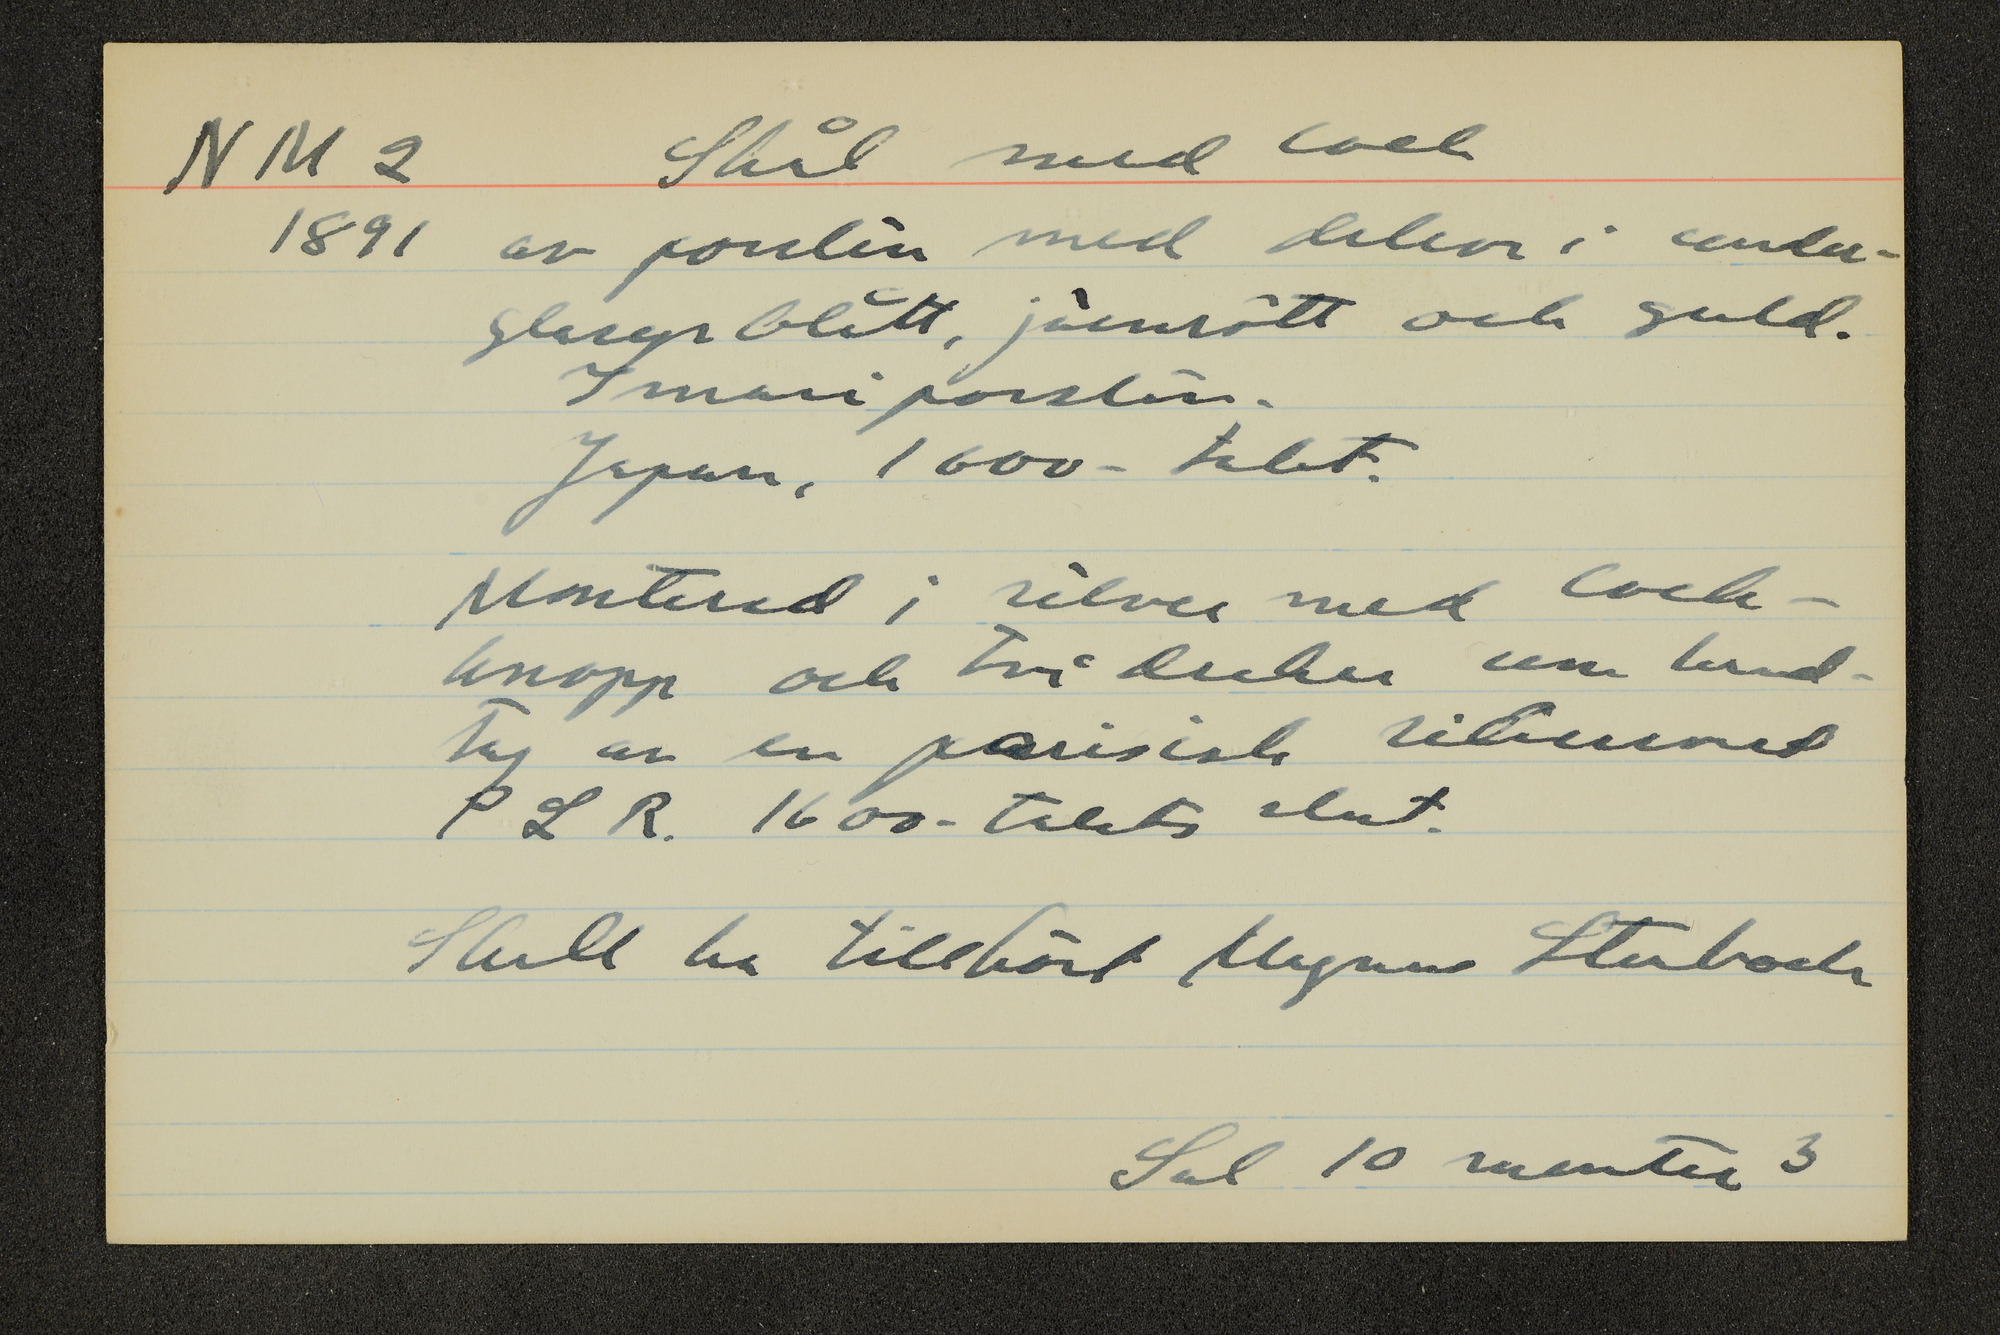 NM 2 Skål med lock
1891 av porslin med dekor i under-
glasyrblått, järnrött och guld.
Imariporslin.
Japan, 1600-talet.
Monterad i silver med lock-
knopp och två drakar som hand-
tag av en parisisk silversmed
P L R. 1600-talets slut.
Skall ha tillhört Magnus Stenbock
Sal 10 monter 3